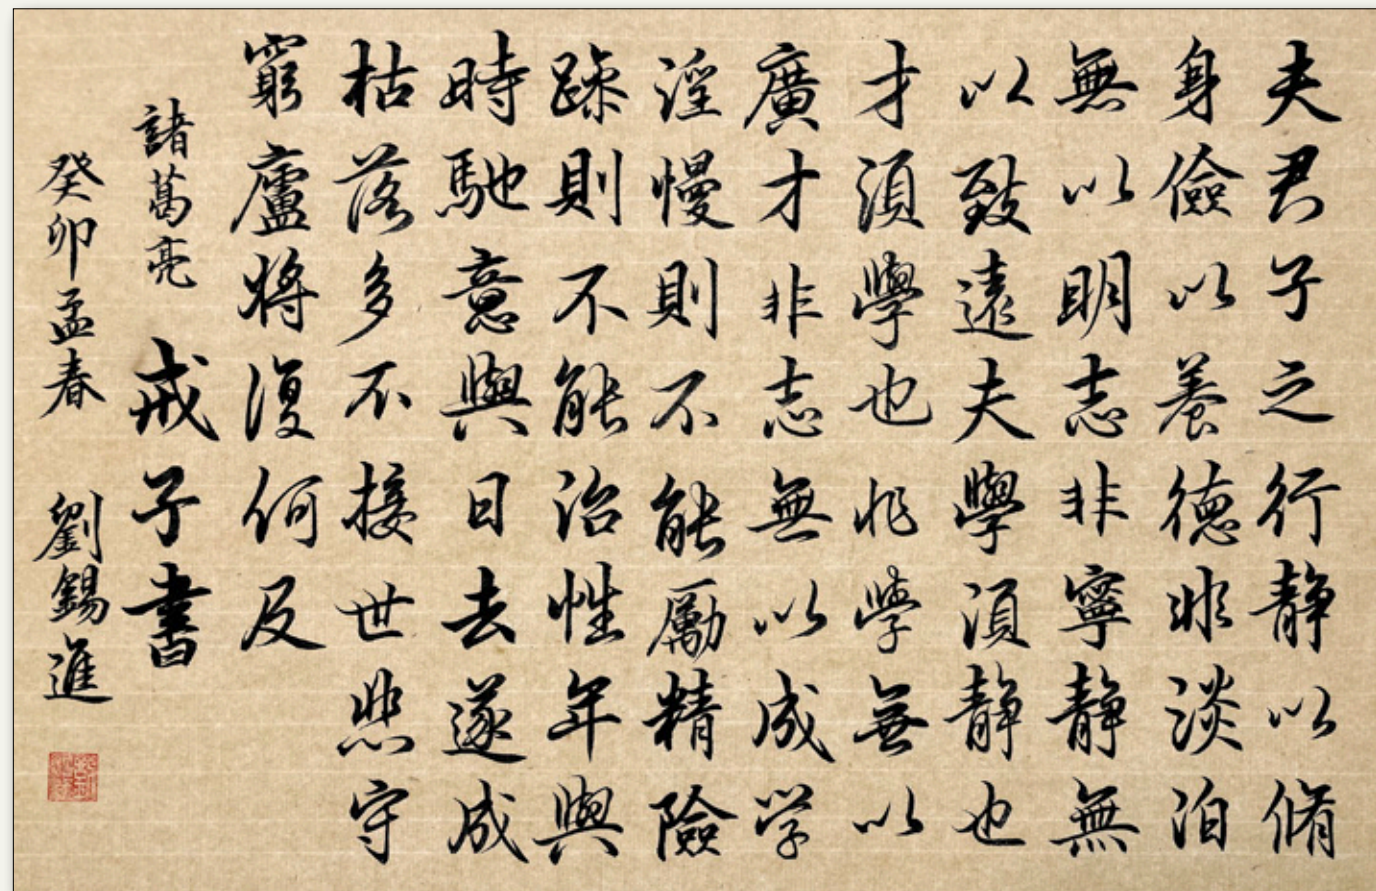 夫君子之行静以脩
身儉以養德非淡泊
無以明志非寧静無
以致遠夫學須静也
才須學也非學無以
廣才非志無以成学
淫慢則不能勵精險
躁則不能治性年與
時馳意與日去遂成
枯落多不接世悲守
窮廬將復何及
諸葛亮 戒子書
癸卯孟春 劉錫進